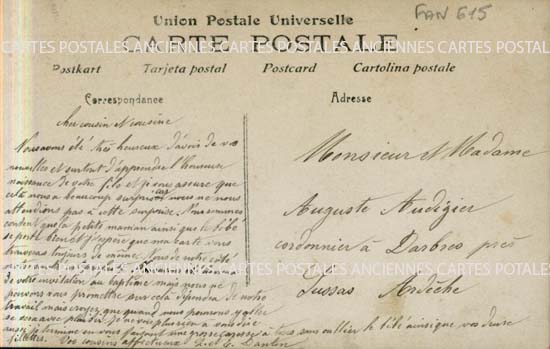 FAN 615
Union Postale Universelle
CARTE POSTALE
CARTES POSTALES ANCIENNES CARTES POSTALES ANCIENNES CARTES POSTALES
Postkart Tarjeta postal Postcard Cartolina postale
Correspondance
Adresse
Cher cousin et cousine
Nous avons été très heureux d'avoir de vos
nouvelles et surtout d'apprendre l'heureuse
naissance de votre fils et je vous assure que
cela nous a beaucoup surpris car nous ne nous
attendions pas à cette surprise. Nous sommes
content que la petite maman ainsi que le bébé
se porte bien et j'espère que ma carte vous
trouvera toujours de même. Nous de notre côté
de votre invitation au baptême mais nous ne
pouvons vous promettre car cela dépendra de notre
travail mais croyez que quand nous pourrons y aller
se sera avec plaisir je ne vois plus rien à vous dire
aussi je termine en vous faisant une grosse caresse à tous sans oublier le bébé ainsi que vos deux
fillettes. Vos cousins affectueux
Monsieur et Madame
Auguste Audigier
cordonnier à Darbres près
Lussas Ardèche